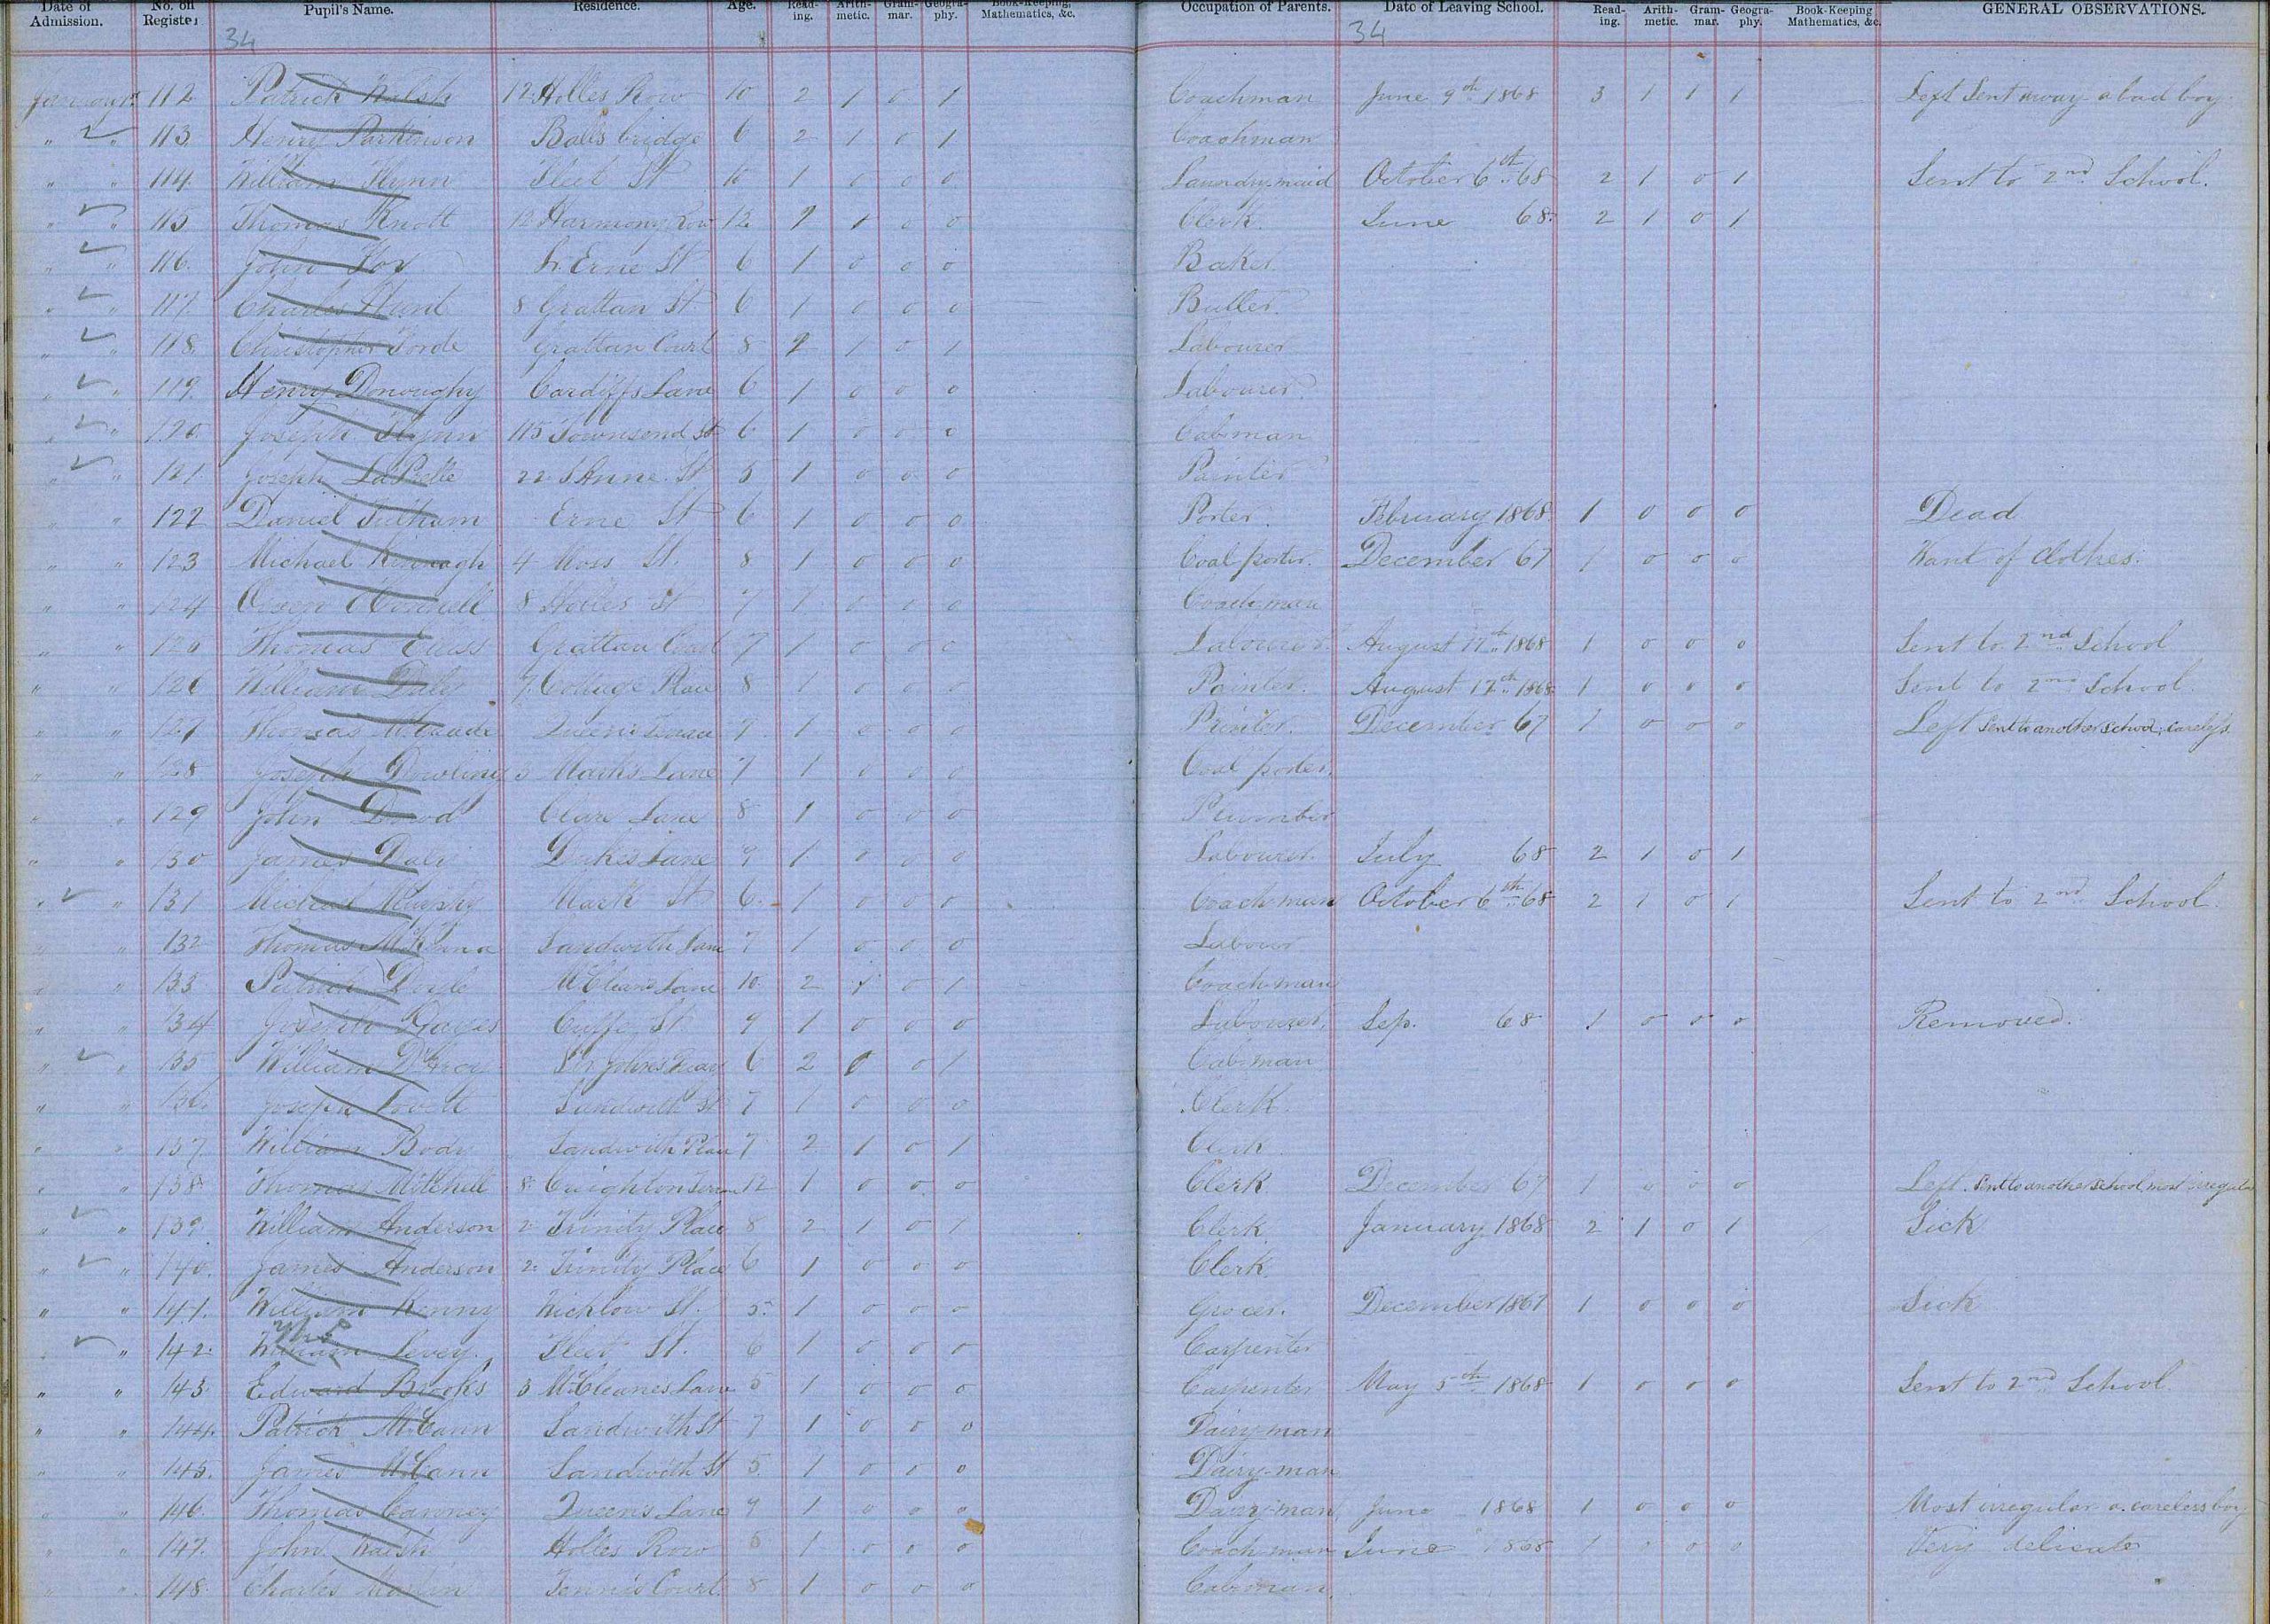 Date of Admission. No. on Register Pupil's Name. Residence. Age. Read-ing. Arith-metic. Gram-mar. Geogra-phy. Book-Keeping, Mathematics, &c. Occupation of Parents. Date of Leaving School. Read-ing. Arith-metic. Gram-mar. Geogra-phy. Book-Keeping Mathematics, &c. GENERAL OBSERVATIONS.
34 34
112 Patrick Walsh 12 Holles Row 10 2 1 0 1 Coachman June 9th 1868 3 1 1 1 Left Sent away a bad boy
" " 113. Henry Parkinson Balls bridge 6 2 1 0 1 Coachman
" " 114. William Flynn Fleet St 10 1 0 0 0 Laundry-maid October 6th 68 2 1 0 1 Sent to 2nd School.
" " 115 Thomas Knott 12 Harmony Row 12 1 0 0 Clerk. June 68. 2 1 0 1
" " 116. John Fox Lr. Erne St 6 1 0 0 0 Baker.
" " 117. Charles Hunt 8 Grattan St 6 1 0 0 0 Butler.
" " 118. Christopher Forde Grattan Court 8 2 1 0 1 Labourer
" " 119. Henry Donoughy Cardiffs Lane 6 1 0 0 0 Labourer.
" " 120. Joseph Flynn 115 Townsend St 6 1 0 0 0 Cabman
" " 121. Joseph 22 S Anne St 5 1 0 0 0 Painter
" " 122 Daniel Erne St 6 1 0 0 0 Porter. February 1868. 1 0 0 0 Dead
" " 123 Michael Kavanagh 4 Moss St. 8 1 0 0 0 Coal porter. December 67 1 0 0 0 Want of Clothes.
" " 124 Owen 8 Holles St 7 1 0 0 0 Coachman
" " 125 Thomas Grattan Court 7 1 0 0 0 Labourer. August 17th 1868 1 0 0 0 Sent to 2nd School
" " 126 William Daly 7. Cottage Place 8 1 0 0 0 Painter. August 17th 1868. 1 0 0 0 Sent to 2nd School.
" " 127 Thomas Queens Terrace 7 1 0 0 0 Printer. December 67 1 0 0 0 Left Sent to another school; careless.
" " 128 Joseph Dowling 3 Mark's Lane 7 1 0 0 0 Coal porter.
" " 129 John Clare Lane 8 1 0 0 0 Plumber
" " 130 James Daly Dukes Lane 9 1 0 0 0 Labourer. July 68 2 1 0 1
" " 131 Michael Murphy Mark St 6. 1 0 0 0 Coachman October 6th 68 2 1 0 1 Sent to 2nd School.
" " 132 Thomas McKenna Sandwith Lane 7 1 0 0 0 Labour
" " 133 Patrick Doyle McCleans Lane 10 2 1 0 1 Coachman
" " 134 Joseph Cuffe St 9 1 0 0 0 Labourer. Sep. 68 1 0 0 0 Removed.
" " 135 William Sir John's Quay 6 2 0 0 1 Cabman
" " 136. Joseph Sandwith St 7 1 0 0 0 Clerk.
" " 137 William Sandwith Place 7 2 1 0 1 Clerk
" " 138. Thomas Mitchell 8. Creighton 12 1 0 0 0 Clerk December 67 1 0 0 0 Left. Sent to another School, most irregular
" " 139. William Anderson 2 Trinity Place 8 2 1 0 1 Clerk. January 1868 2 1 0 1 Sick
" " 140. James Anderson 2. Trinity Place 6 1 0 0 0 Clerk.
" " 141. William Kenny Wicklow St. 5. 1 0 0 0 Grocer. December 1867 1 0 0 0 Sick
" " 142. William Fleet St. 6 1 0 0 0 Carpenter
" " 143. Edward Brooks 3 McCleanes Lane 5 1 0 0 0 Carpenter May 5th 1868 1 0 0 0 Sent to 2nd School.
" " 144. Patrick McCann Sandwith St 7 1 0 0 0 Dairy-man
" " 145. James McCann Sandwith St 5. 1 0 0 0 Dairy-man
" " 146. Thomas Queen's Lane 9 1 0 0 0 Dairy-man June 1868 1 0 0 0 Most irregular a careless boy
" " 147. John Walsh Holles Row 5 1 0 0 0 Coachman June 1868 1 0 0 0 Very delicate
" " 148. Charles Tennis Court. 8 1 0 0 0 Cabman.